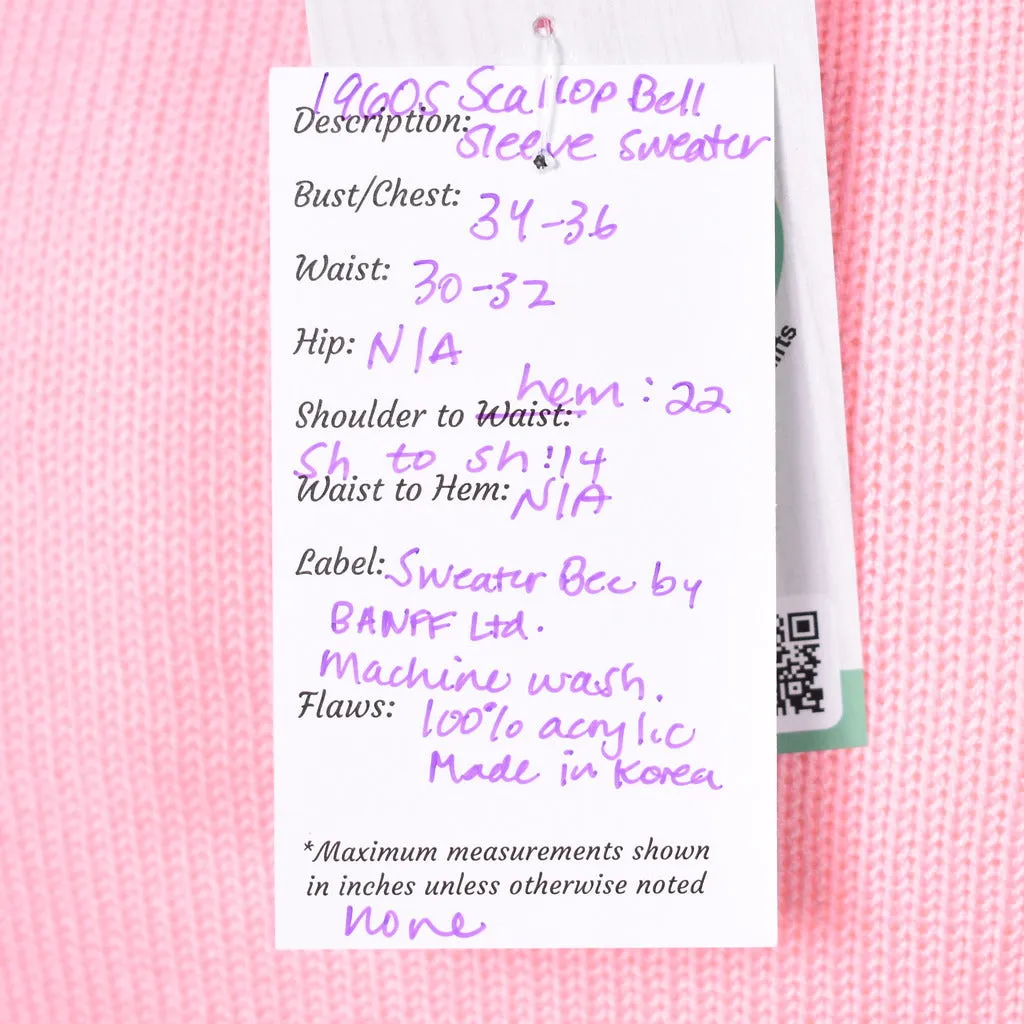 1960s Scallop Bell
Description:
Sleeve sweater
Bust/Chest: 34-36
Waist: 30-32
Hip: N/A
hem: 22
Shoulder to Waist:
Sh to sh: 14
Waist to Hem: N/A
Label: Sweater Bee by
BANFF Ltd.
Machine wash.
Flaws:
100% acrylic
Made in Korea
*Maximum measurements shown
in inches unless otherwise noted
none